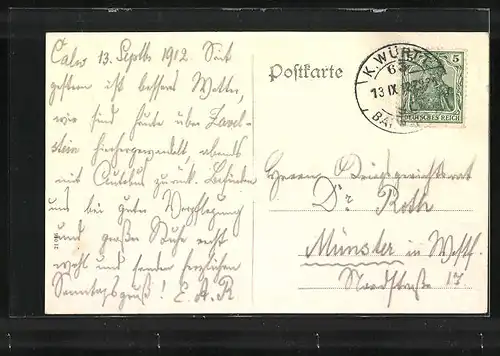 Calw 13. Septbr 1912. Seit
gestern ist besseres Wetter,
wir sind heute über Zavel-
stein hierhergewandelt, abends
mit Autobus zurück. Befinden
uns bei guter Verpflegung
und großer Ruhe recht
wohl und senden herzlichen
Sonntagsgruß! E. A. R
Postkarte
K. WÜRTT.
13 IX
BAHN
5
DEUTSCHES REICH
Herrn Kriegsgerichtsrat
Dr Roth
Münster in Westf.
Nordstraße 17